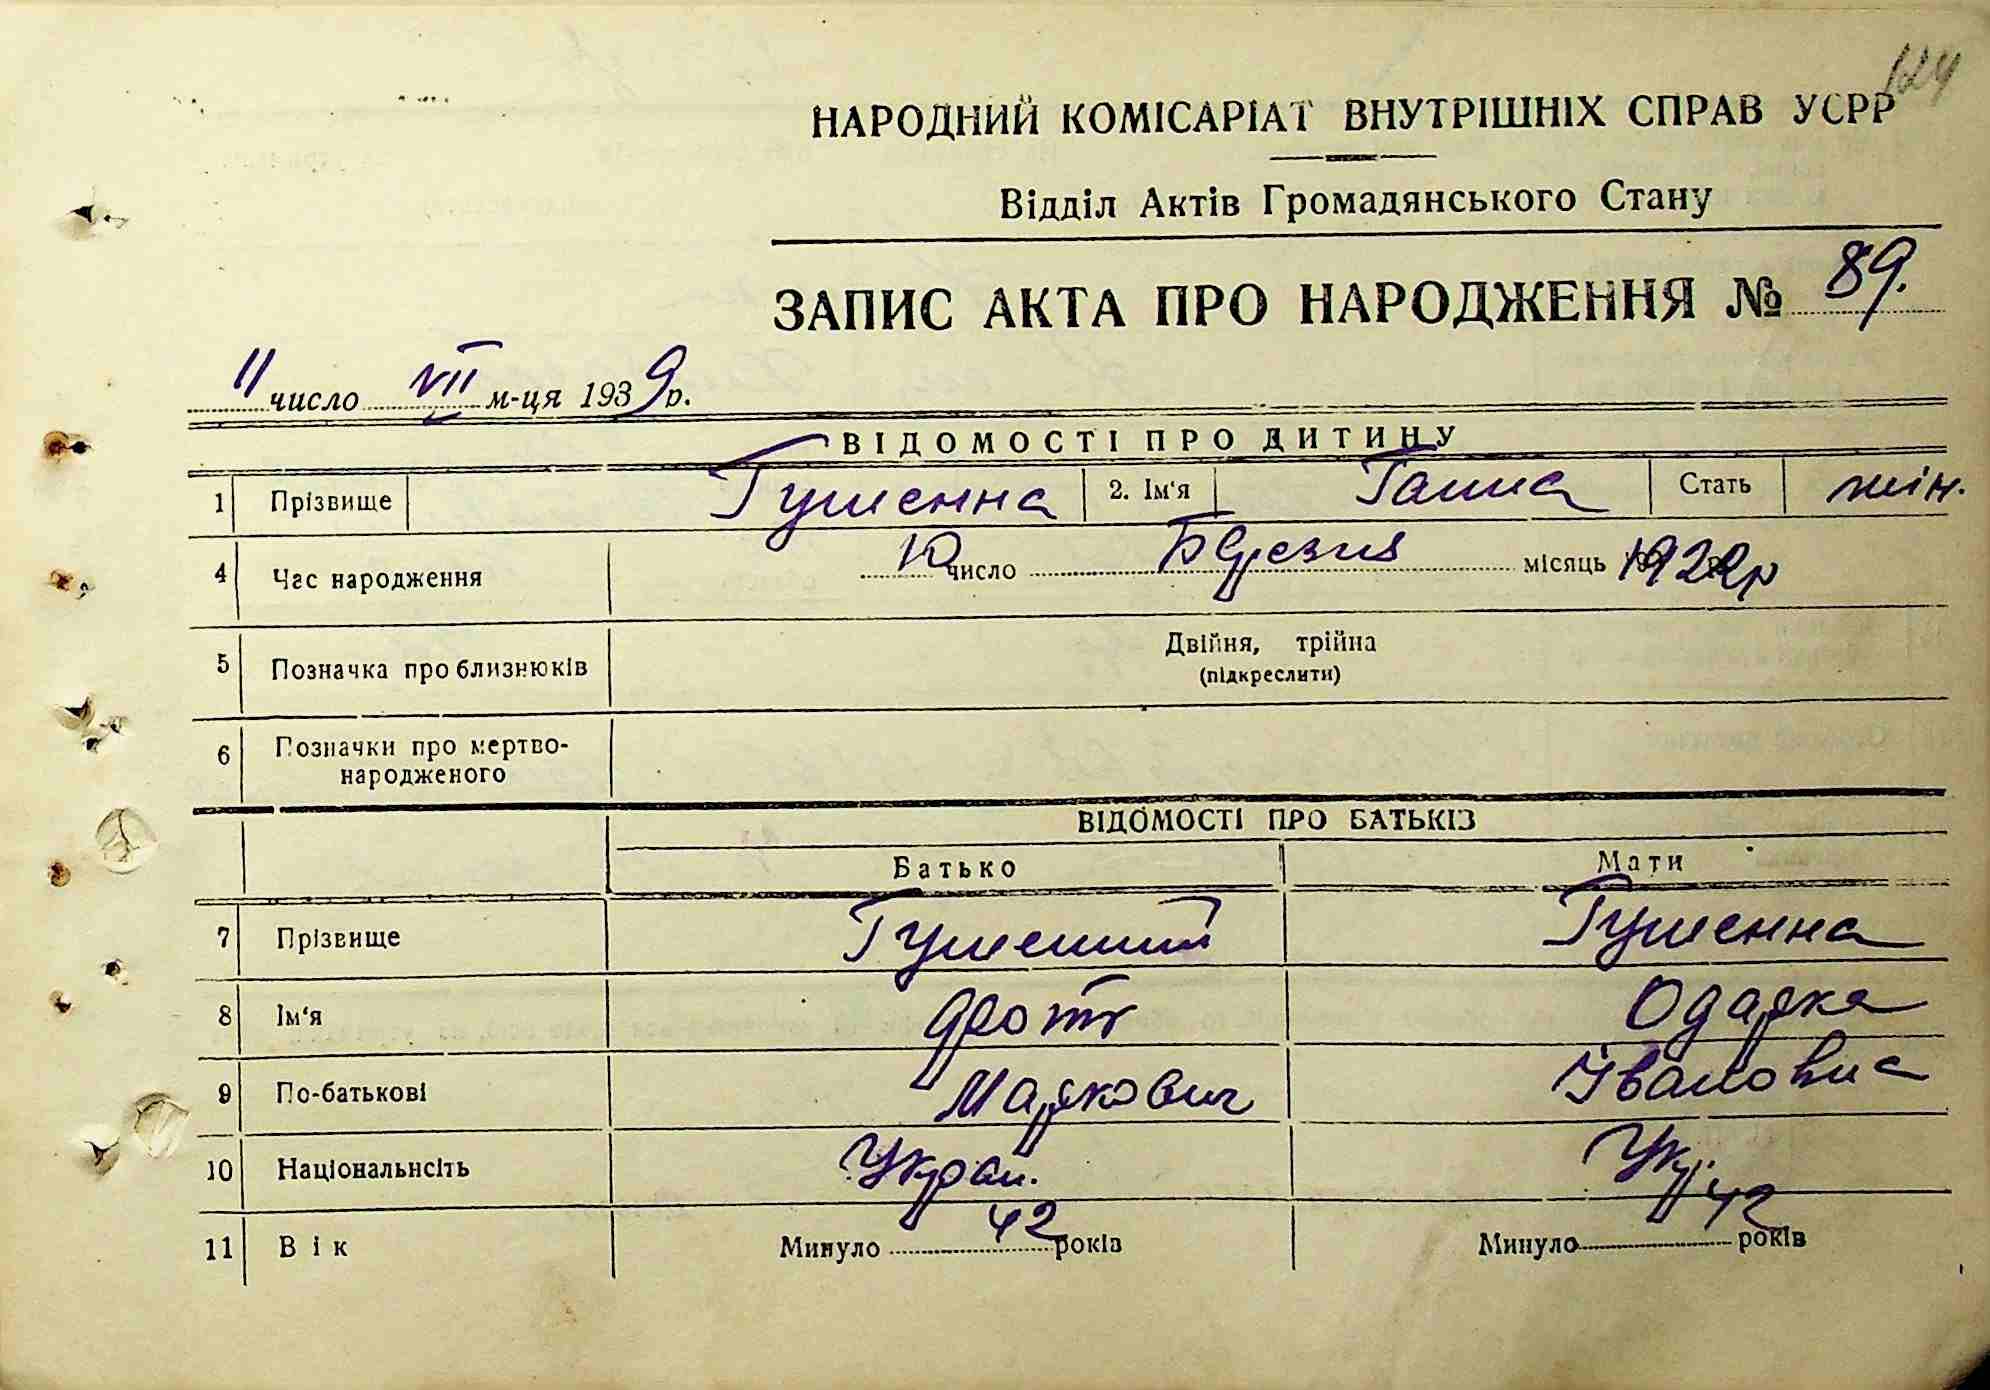 124
НАРОДНИЙ КОМІСАРІАТ ВНУТРІШНІХ СПРАВ УСРР
Відділ Актів Громадянського Стану
ЗАПИС АКТА ПРО НАРОДЖЕННЯ № 89.
11 число VII м-ця 1939р.
ВІДОМОСТІ ПРО ДИТИНУ
1 Прізвище Гуменна 2. Ім'я Ганна Стать жін.
4 Час народження 10 число Березня місяць 1922р
5 Позначка про близнюків Двійня, трійна
(підкреслити)
6 Позначки про мертво-
народженого
ВІДОМОСТІ ПРО БАТЬКІВ
Батько Мати
7 Прізвище Гуменний Гуменна
8 Ім'я Одарка
9 По-батькові Маркович Івановна
10 Національність Укран. Укр.
11 Вік Минуло 42 років Минуло 42 років